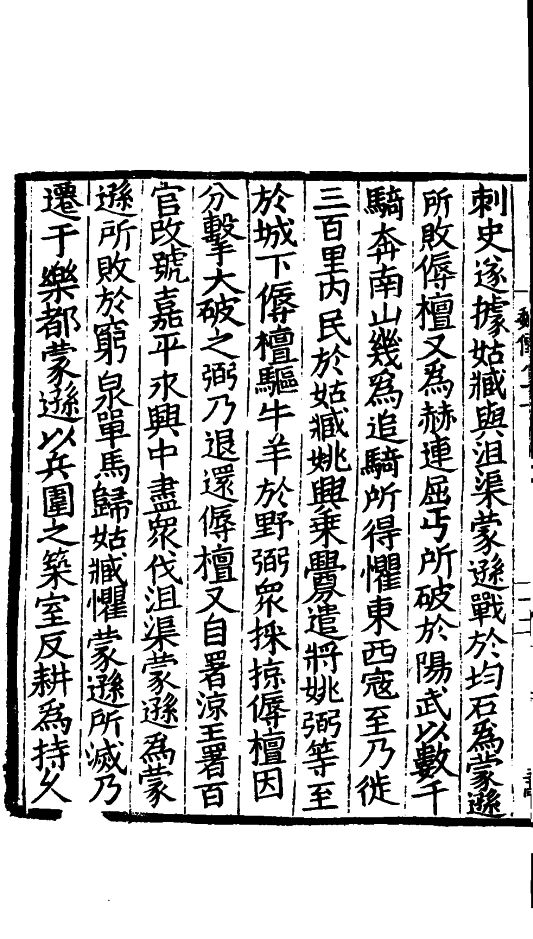 刺史遂據姑臧與沮渠蒙遜戰於均石為蒙遜
所敗傉檀又為赫連屈丐所破於陽武以數千
騎奔南山幾為追騎所得懼東西寇至乃徙
三百里內民於姑臧姚興乗釁遣將姚弼等至
於城下傉檀驅牛羊於野弼衆採掠傉檀因
分擊大破之弼乃退還傉檀又自署涼王署百
官改號嘉平永興中盡衆伐沮渠蒙遜為蒙
遜所敗於窮泉單馬歸姑臧懼蒙遜所滅乃
遷于樂都蒙遜以兵圍之築室反耕為持久